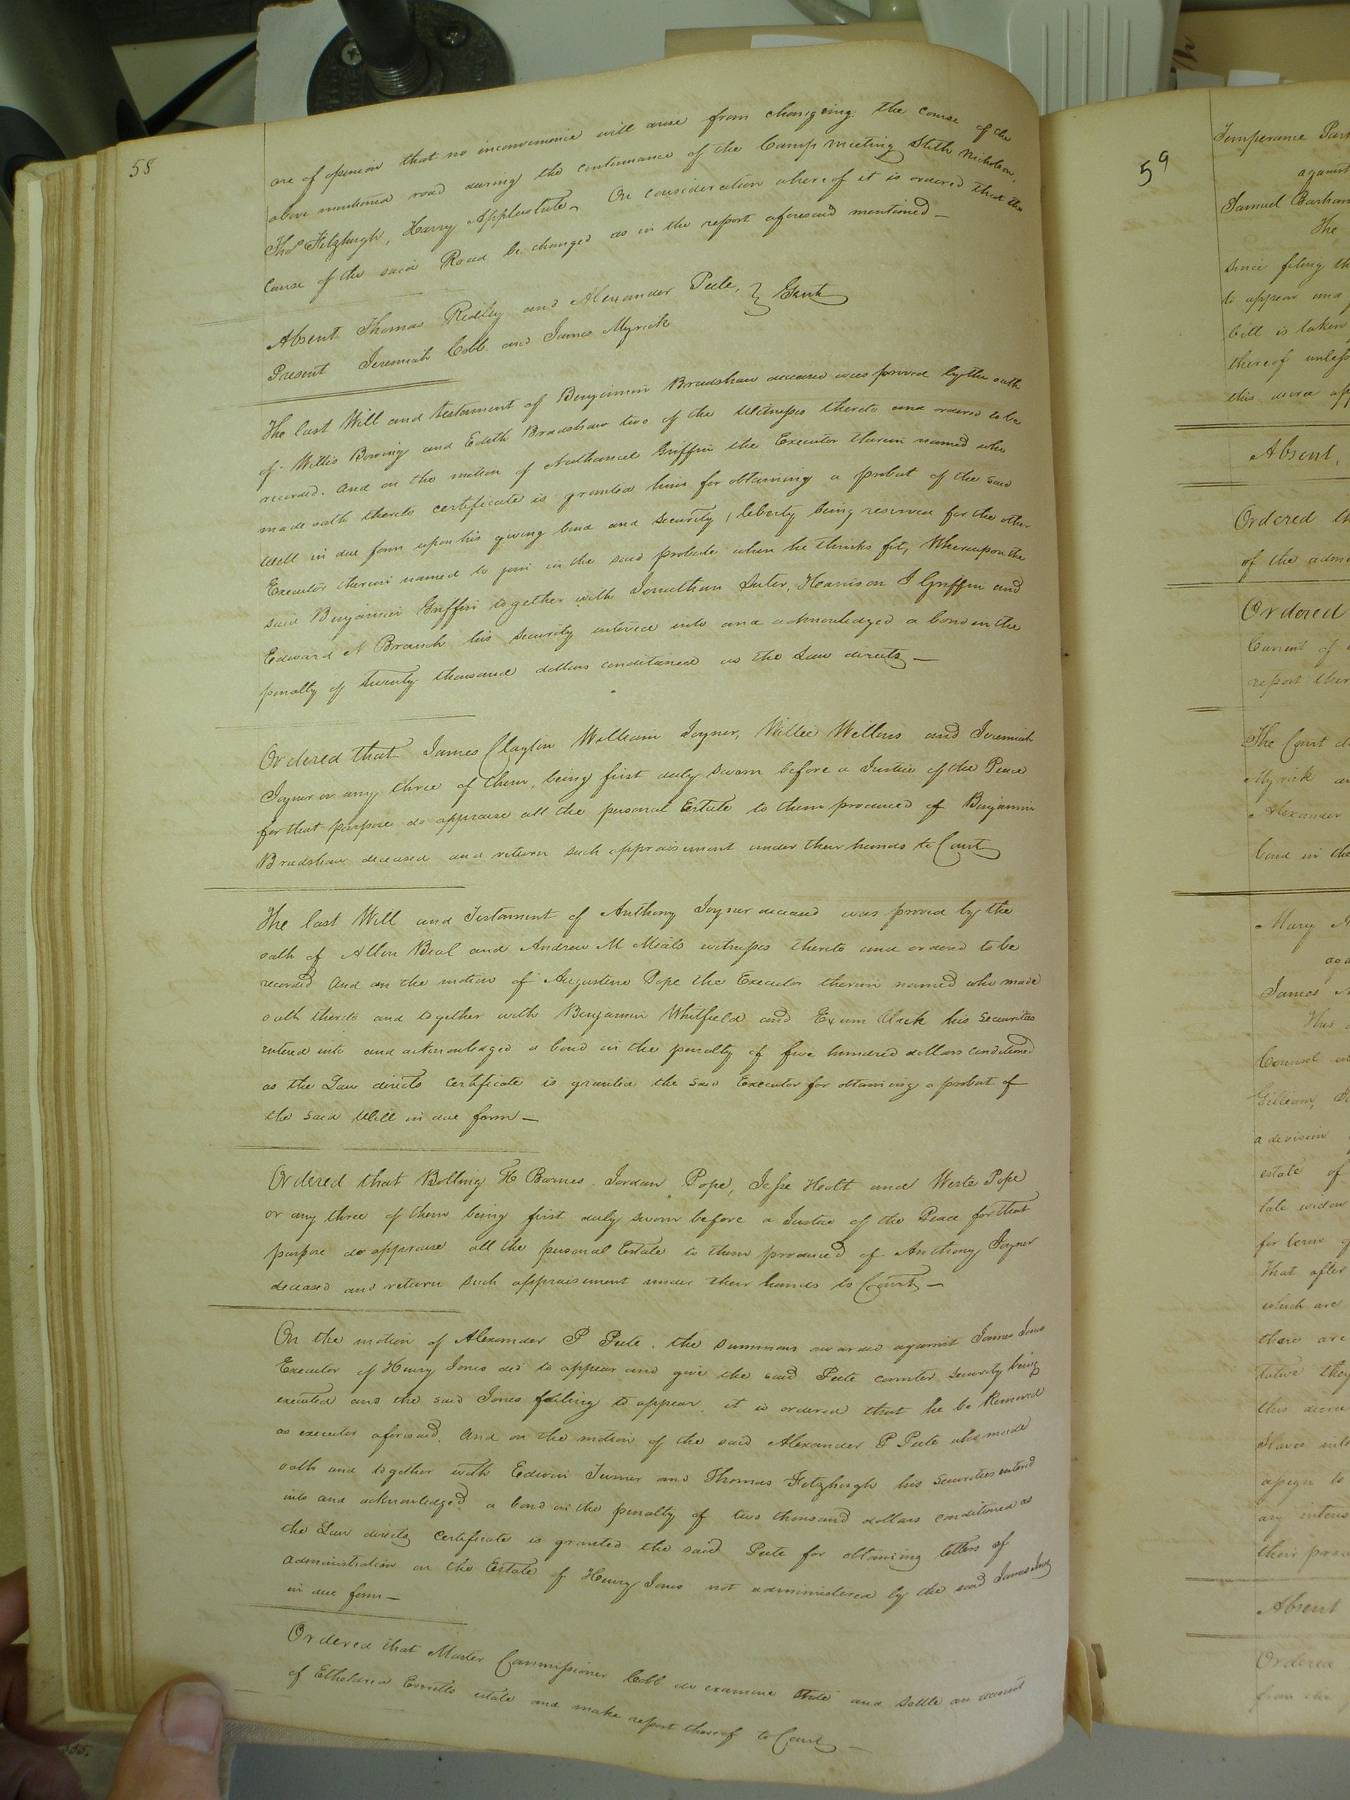 58
are of opinion that no inconvenience will arise from changeing the course of the
above mentioned road during the continuance of the Camp meeting Stith Nicholson,
Thos Fitzhugh, Harry Applewhite. On consideration whereof it is ordered that the
course of the said Road be changed as in the report aforesaid mentioned —
Absent Thomas Ridley and Alexander Peete, } Gent
Present Jeremiah Cobb and James Myrick
The last Will and testament of Benjamin Bradshaw deceased was proved by the oath
of Willis Bowing and Edith Bradshaw two of the Witnesses thereto and ordered to be
recorded. And on the motion of Nathaniel Griffin the Executor therein named who
made oath thereto certificate is granted him for obtaining a probat of the said
Will in due form upon his giving bond and security, liberty being reserved for the other
Executor therein named to join in the said probate when he thinks fit, Whereupon the
said Benjamin Griffin together with Jonathan Luter, Harrison J Griffin and
Edward N Branch his security entered into and acknowledged a bond in the
penalty of twenty thousand dollars conditioned as the Law directs —
Ordered that James Clayton William Joyner, Willie Wellons and Jeremiah
Joyner or any three of them, being first duly sworn before a Justice of the Peace
for that purpose do appraise all the personal Estate to them produced of Benjamin
Bradshaw deceased and return such appraisement under their hands to Court
The last Will and Testament of Anthony Joyner deceased was proved by the
oath of Allen Beal and Andrew M Meals witnesses thereto and ordered to be
recorded And on the motion of Augustine Pope the Executor therein named who made
oath thereto and together with Benjamin Whitfield and Exum Clark his securities
entered into and acknowledged a bond in the penalty of five hundred dollars conditioned
as the Law directs certificate is granted the said Executor for obtaining a probat of
the said Will in due form —
Ordered that Bolling H Barnes, Jordan Pope, Jesse Holt and Weste Pope
or any three of them being first duly sworn before a Justice of the Peace for that
purpose do appraise all the personal Estate to them produced of Anthony Joyner
deceased and return such appraisement under their hands to Court —
On the motion of Alexander P Peete, the summons awarded against James Jones
Executor of Henry Jones decd to appear and give the said Peete counter security being
executed and the said Jones failing to appear, it is ordered that he be Removed
as executor aforesaid. And on the motion of the said Alexander P Peete who made
oath and together with Edwin Turner and Thomas Fitzhugh his securities entered
into and acknowledged a bond in the penalty of two thousand dollars conditioned as
the Law directs certificate is granted the said Peete for obtaining letters of
administration on the Estate of Henry Jones not administered by the said James Jones
in due form —
Ordered that Master Commissioner Cobb do examine state and settle an account
of Etheldred Everetts estate and make report thereof to Court —
59
Temperance
against
Samuel Barham
The
since filing th
to appear and
bill is taken
thereof unless
this decree
Absent,
Ordered th
of the
Ordered
Current of
report ther
The Court d
Myrick an
Alexander
bond in the
Mary
James
This
Counsel
Gilliam,
a division
estate of
late widow
for term
that after
which are
there are
they
this decree
Slaves
assign to
any
their
Absent
Ordered
from the